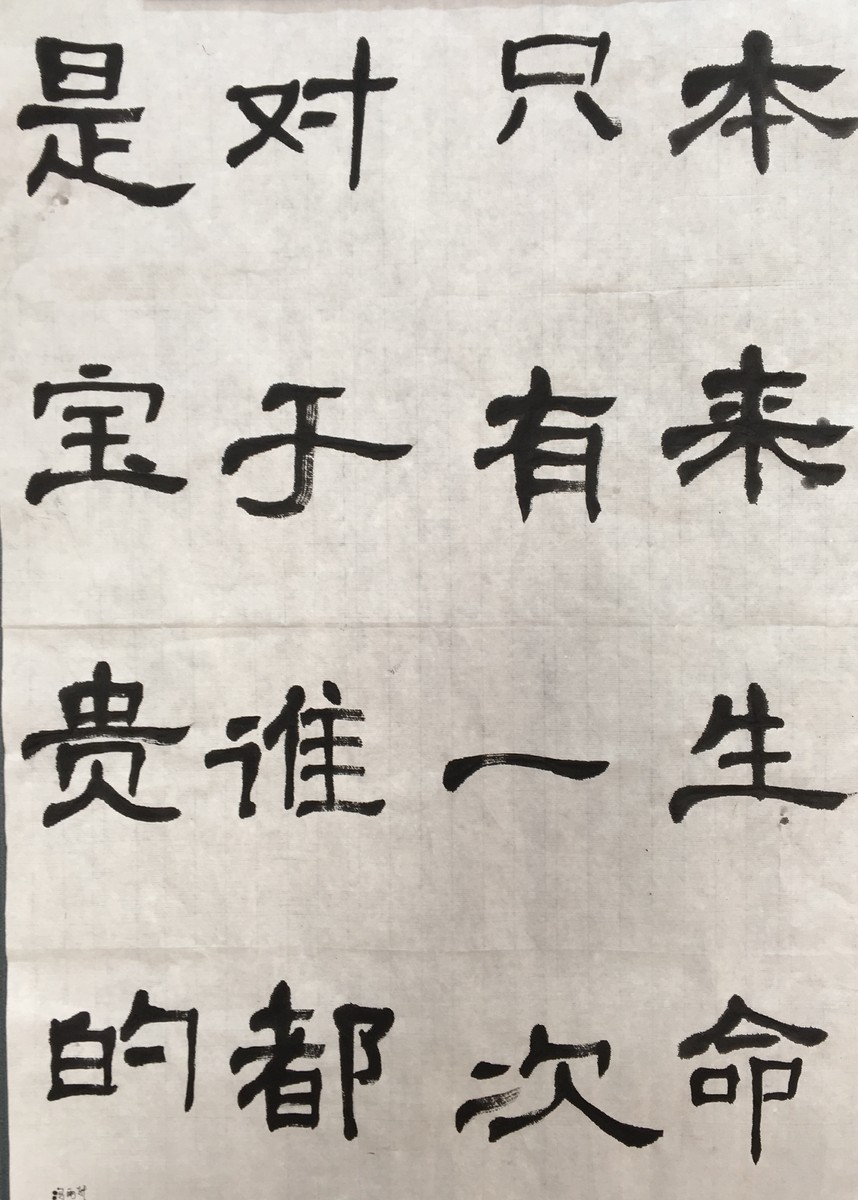 本来生命
只有一次
对于谁都
是宝贵的